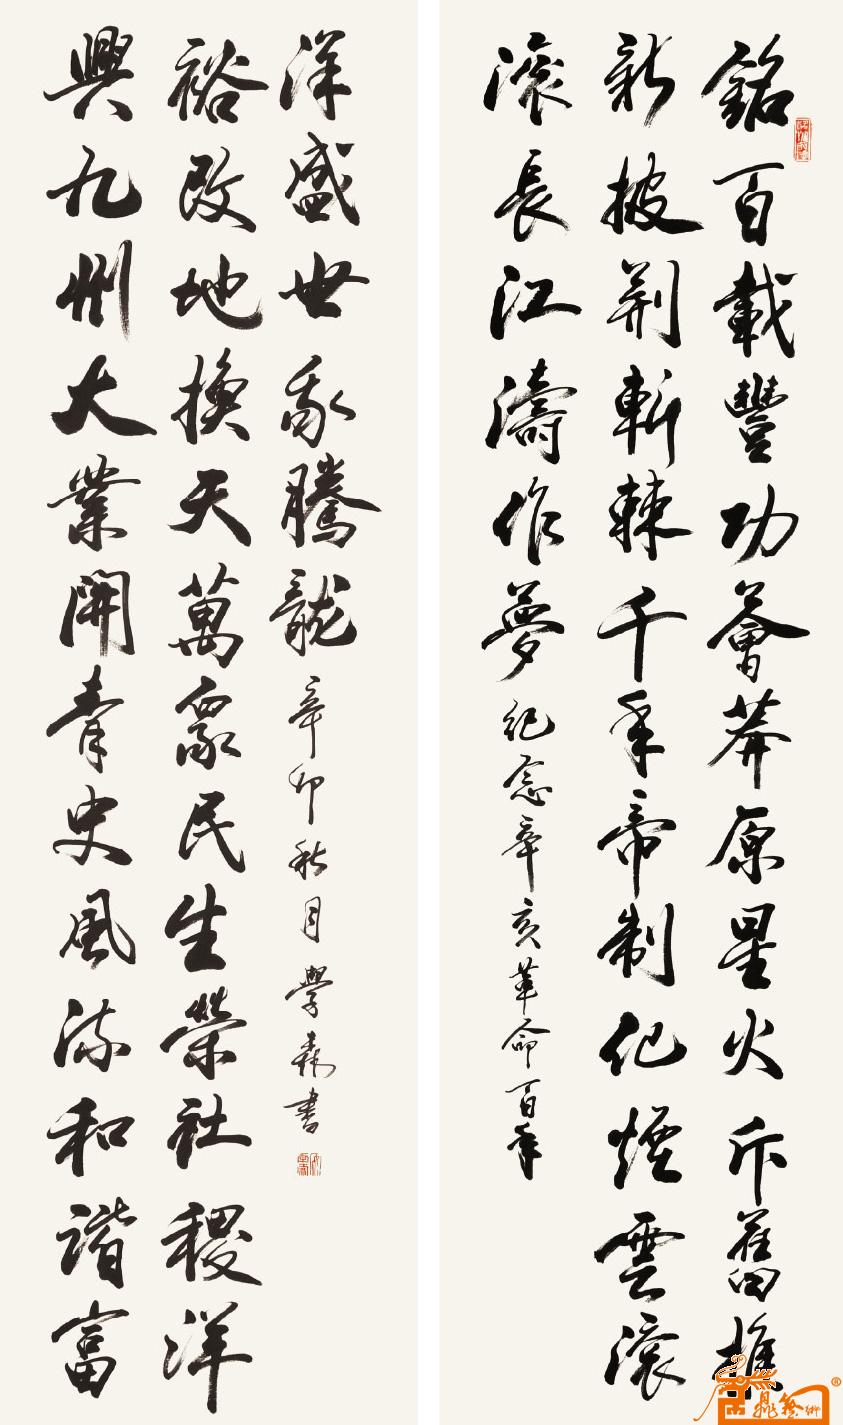 銘百載豐功薈莽原星火斥舊推
新披荆斬棘千年帝制化煙雲滚
滚長江濤作夢
紀念辛亥革命百年
興九州大業開青史風流和諧富
裕改地換天萬衆民生榮社稷洋
洋盛世騰龍
辛卯秋月學森書